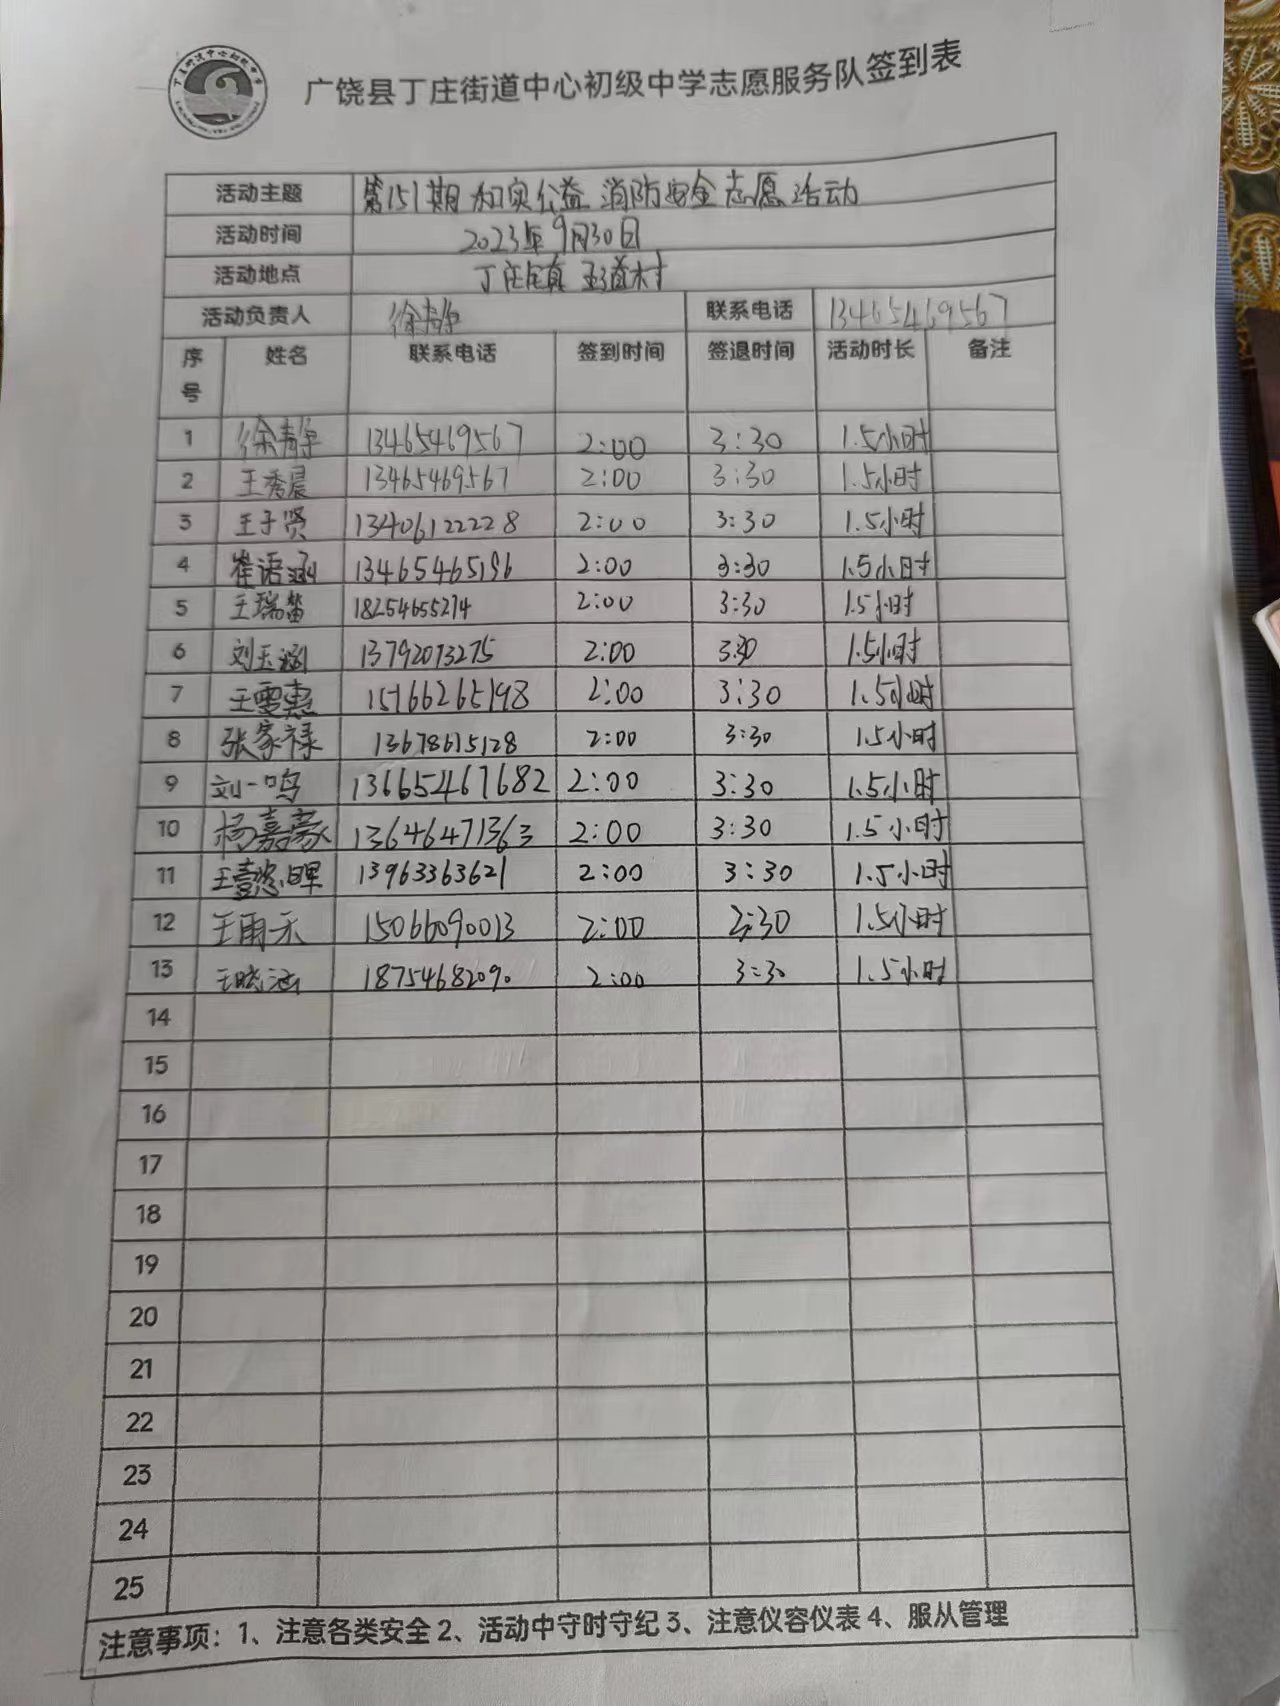 广饶县丁庄街道中心初级中学志愿服务队签到表
活动主题 第151期 和实公益 消防安全志愿活动
活动时间 2023年9月30日
活动地点 丁庄镇 王道村
活动负责人 徐静 联系电话 13465469567
序号 姓名 联系电话 签到时间 签退时间 活动时长 备注
1 徐静 13465469567 2:00 3:30 1.5小时
2 王秀晨 13465469567 2:00 3:30 1.5小时
3 王子贤 13406122228 2:00 3:30 1.5小时
4 崔语涵 13465465196 2:00 3:30 1.5小时
5 王瑞笛 18254655274 2:00 3:30 1.5小时
6 刘玉涵 13792073275 2:00 3:30 1.5小时
7 王雯惠 15166265198 2:00 3:30 1.5小时
8 张家禄 13678615128 2:00 3:30 1.5小时
9 刘一鸣 13665467682 2:00 3:30 1.5小时
10 杨嘉豪 13646471363 2:00 3:30 1.5小时
11 13963363621 2:00 3:30 1.5小时
12 王雨禾 15066090013 2:00 3:30 1.5小时
13 王晓涵 18754682090 2:00 3:30 1.5小时
14
15
16
17
18
19
20
21
22
23
24
25
注意事项：1、注意各类安全 2、活动中守时守纪 3、注意仪容仪表 4、服从管理